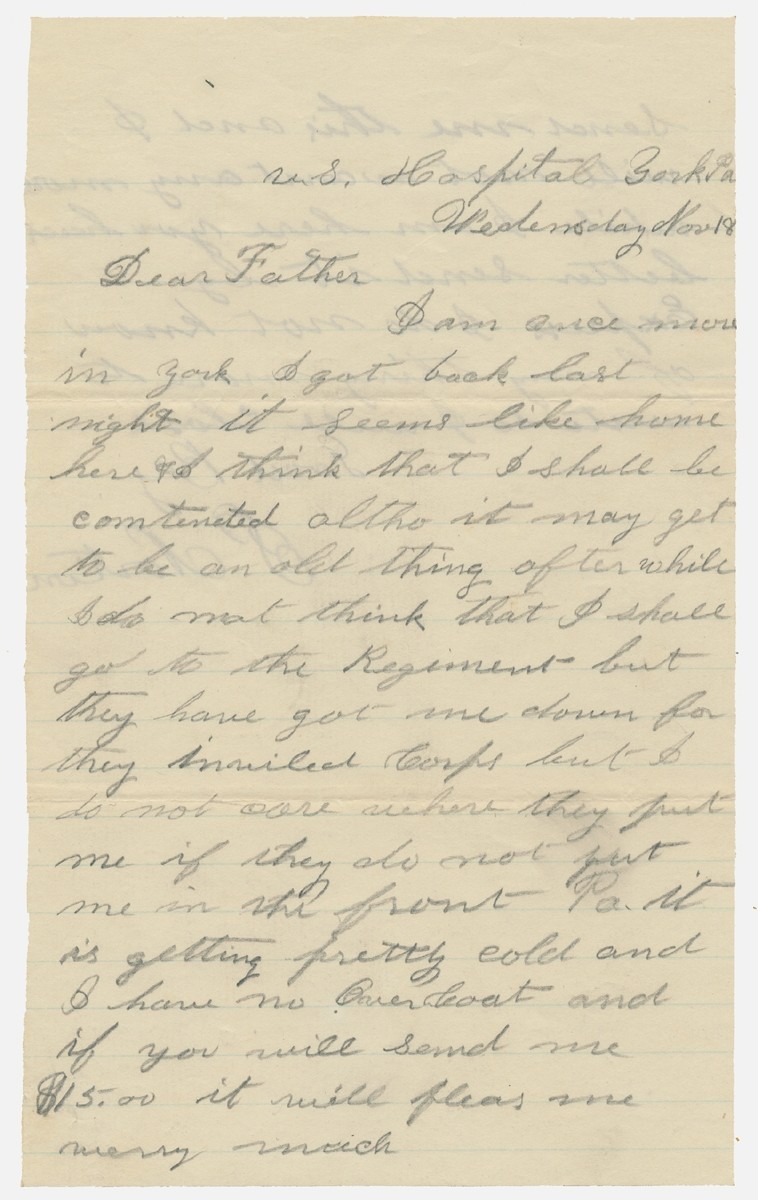 U.S. Hospital York Pa
Wedensday Nov 18
Dear Father
I am once more
in York I got back last
night it seems like home
here & I think that I shall be
comtented altho it may get
to be an old thing after while
I do not think that I shall
go to the Regiment but
they have got me down for
they inviled Corps but I
do not care where they put
me if they do not put
me in the front Pa. it
is getting pretty cold and
I have no Over Coat and
if you will send me
$15.00 it will pleas me
verry much